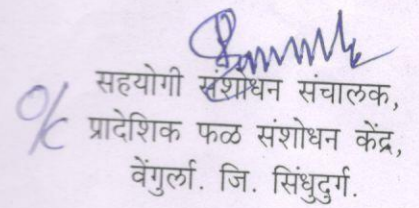 सहयोगी संशोधन संचालक,
o/c प्रादेशिक फळ संशोधन केंद्र,
वेंगुर्ला. जि. सिंधुदुर्ग.